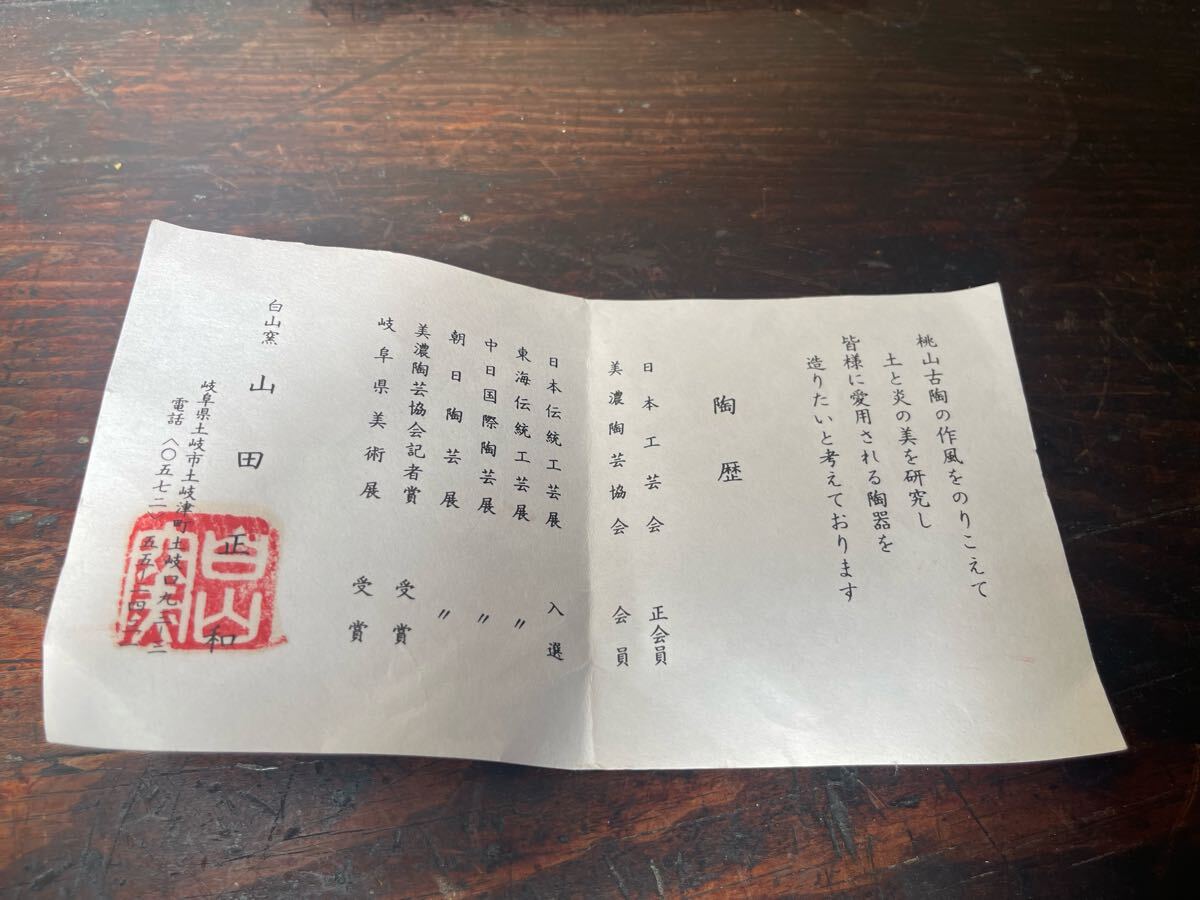 桃山古陶の作風をのりこえて
土と炎の美を研究し
皆様に愛用される陶器を
造りたいと考えております
陶歴
日本工芸会 正会員
美濃陶芸協会 会員
日本伝統工芸展 入選
東海伝統工芸展 〃
中日国際陶芸展 〃
朝日陶芸展 〃
美濃陶芸協会記者賞 受賞
岐阜県美術展 受賞
白山窯 山田正和
岐阜県土岐市土岐津町土岐口
電話 〈〇五七二
白山